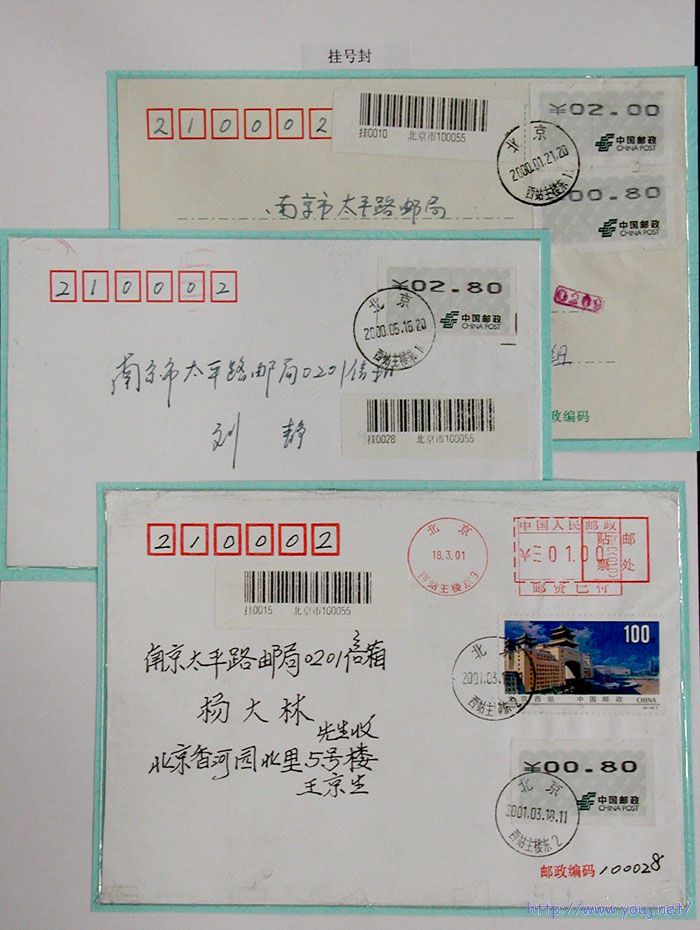 挂号封
210002
挂0010 北京市100055
¥02.00
中国邮政
CHINA POST
北京
2000.01.21.20
西站主楼东1
¥00.80
中国邮政
CHINA POST
南京市太平路邮局
0209
组
政编码
210002
¥02.80
中国邮政
CHINA POST
北京
2000.05.16.20
西站主楼东1
南京市太平路邮局0201信箱
刘静
挂0028 北京市100055
210002
北京
18.3.01
西站主楼京3
中国人民邮政
¥01.00
贴邮
票处
邮资已付
挂0015 北京市100055
100
京西站 中国邮政 CHINA
北京
2001.03.
西站主楼东2
南京太平路邮局0201信箱
杨大林
先生收
北京香河园北里5号楼
王京生
¥00.80
中国邮政
CHINA POST
北京
2001.03.18.11
西站主楼东2
邮政编码 100028
http://www.youj.net/